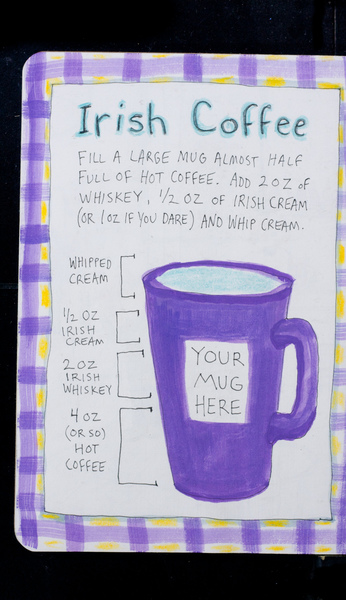 Irish Coffee
FILL A LARGE MUG ALMOST HALF
FULL OF HOT COFFEE. ADD 2 OZ of
WHISKEY, 1/2 OZ OF IRISH CREAM
(OR 1 OZ IF YOU DARE) AND WHIP CREAM.
WHIPPED
CREAM
1/2 OZ
IRISH
CREAM
2 OZ
IRISH
WHISKEY
4 OZ
(OR SO)
HOT
COFFEE
YOUR
MUG
HERE